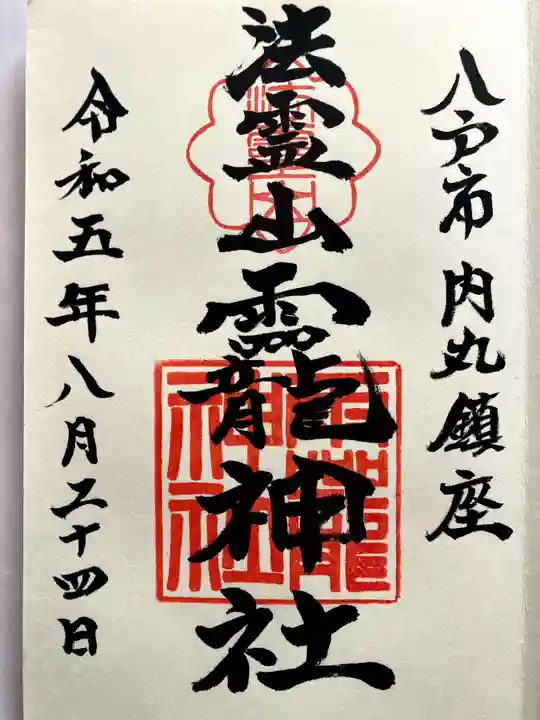 八戸市内丸鎮座
法霊山龗神社
令和五年八月二十四日
龗神社